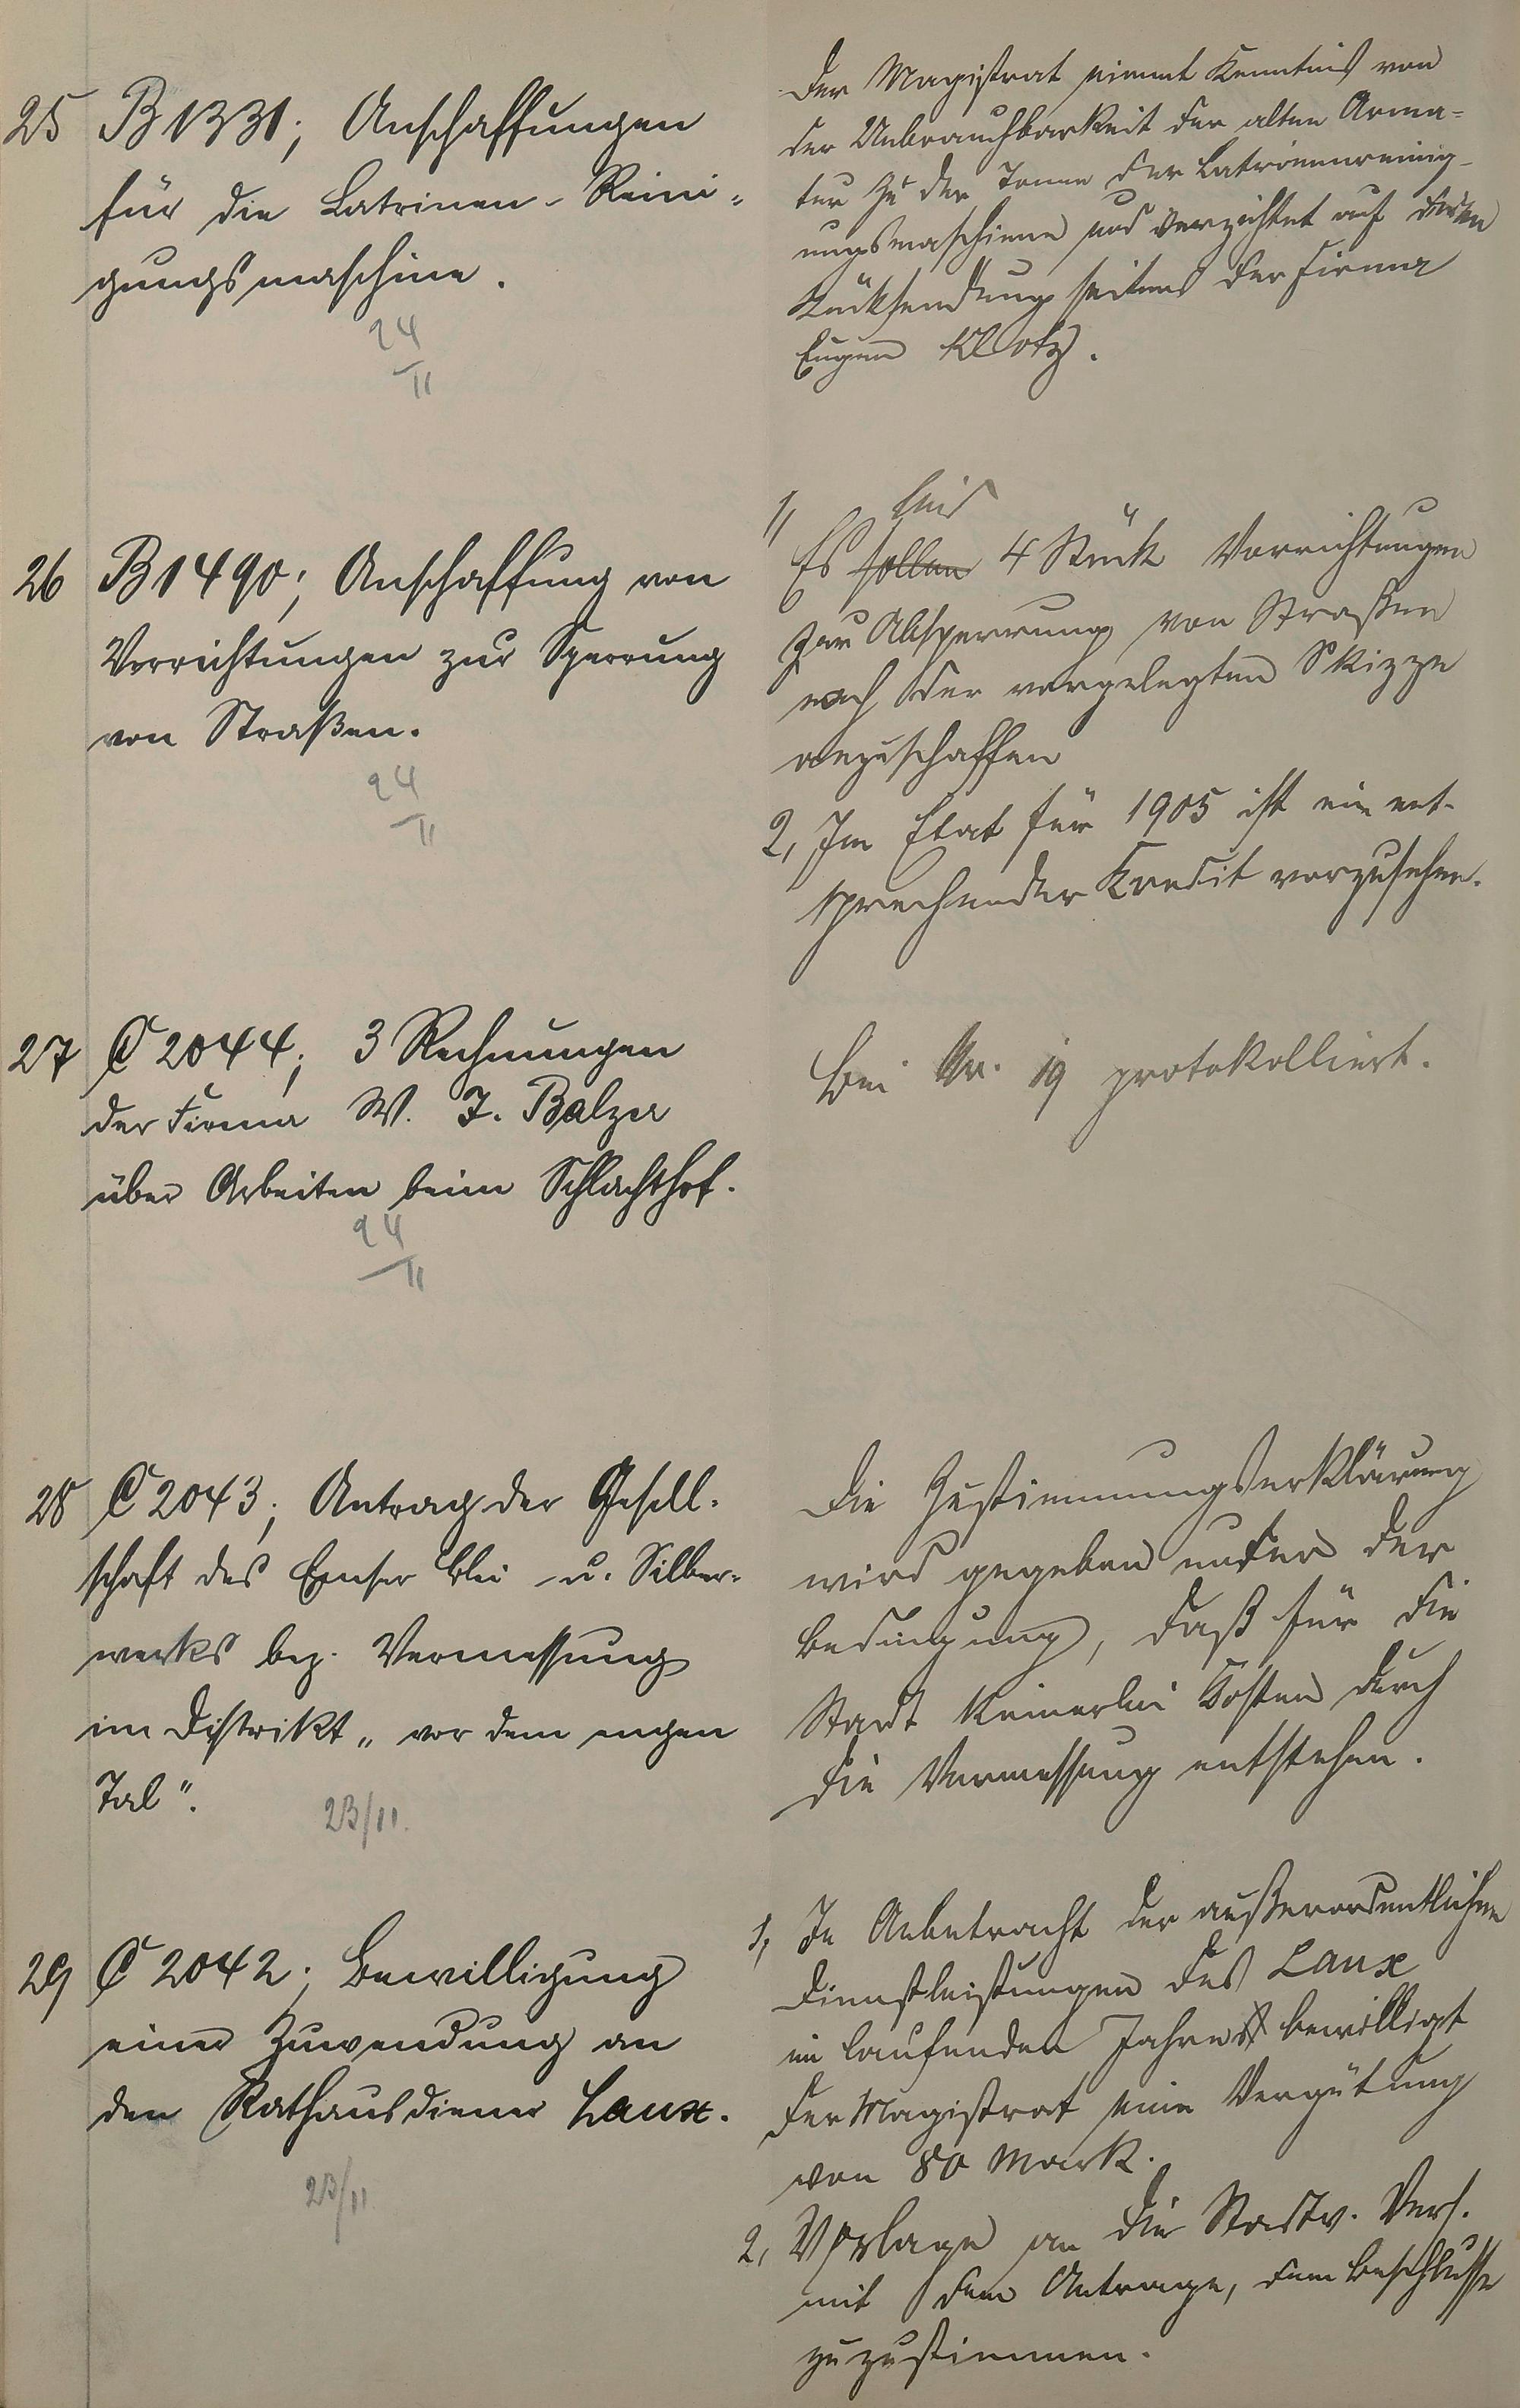 25 B 1331; Anschaffungen
für die Latrinen-Reini-
gungsmaschine.
24/11
Der Magistrat nimmt Kenntnis von
der Unbrauchbarkeit der alten Arma-
tur zu der Tonne der Latrinenreinig-
ungsmaschine und verzichtet auf deren
Rücksendung seitens der Firma
Eugen Klotz.
26 B 1490; Anschaffung von
Vorrichtungen zur Sperrung
von Straßen.
24/11
1,
Es sollen 4 Stück Vorrichtungen
zur Absperrung von Straßen
nach der vorgelegten Skizze
anzuschaffen
2, Im Etat für 1905 ist ein ent-
sprechender Kredit vorzusehen.
27 C 2044; 3 Rechnungen
der Firma W. J. Balzer
über Arbeiten beim Schlachthof.
24/11
Bei Nr. 19 protokolliert.
28 C 2043; Antrag der Gesell-
schaft des Emser Blei- u. Silber-
werks bez. Vermessung
im Distrikt „vor dem engen
Tal".
23/11.
Die Zustimmungserklärung
wird gegeben unter der
Bedingung, daß für die
Stadt keinerlei Kosten durch
die Vermessung entstehen.
29 C 2042; Bewilligung
einer Zuwendung an
den Rathausdiener Laux.
23/11
1, In Anbetracht der außerordentlichen
Dienstleistungen des Laux
im laufenden Jahre bewilligt
der Magistrat eine Vergütung
von 80 Mark.
2, Vorlage an die Stadtv. Vers.
mit dem Antrage, dem Beschlusse
zuzustimmen.